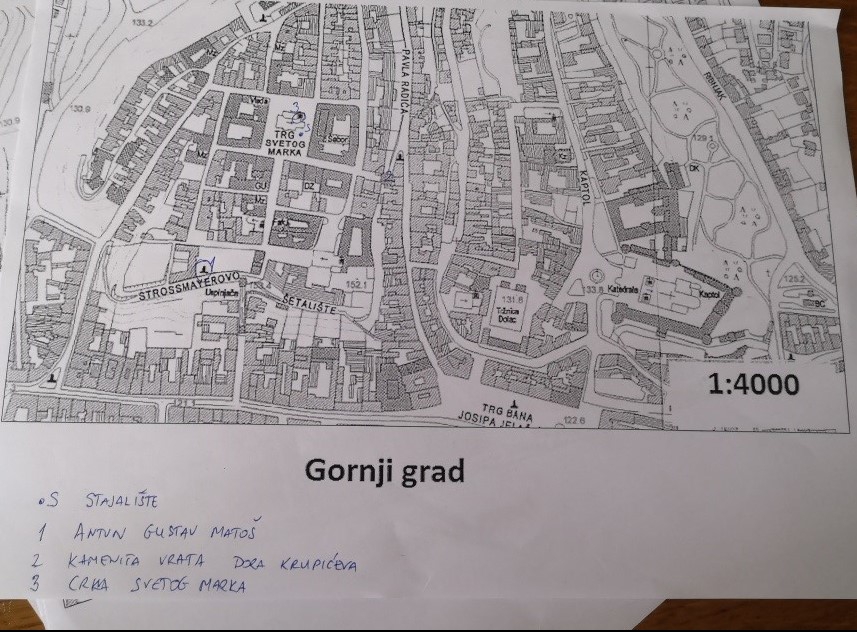 133.2
130.9
130.9
Mz
Mz
Vlada
3
S
TRG
SVETOG
MARKA
Sabor
PAVLA RADIĆA
RIBNJAK
129.1
DK
Mz
2
Kz
KAPTOL
GU
DZ
Mz
1
STROSSMAYEROVO
Uspinjača
ŠETALIŠTE
152.1
131.6
Tržnica
Dolac
133.8
Katedrala
Kaptol
125.2
1:4000
TRG BANA
JOSIPA JELAČ
122.6
121.1
Gornji grad
•S STAJALIŠTE
1 ANTUN GUSTAV MATOŠ
2 KAMENITA VRATA DORA KRUPIĆEVA
3 CRKVA SVETOG MARKA